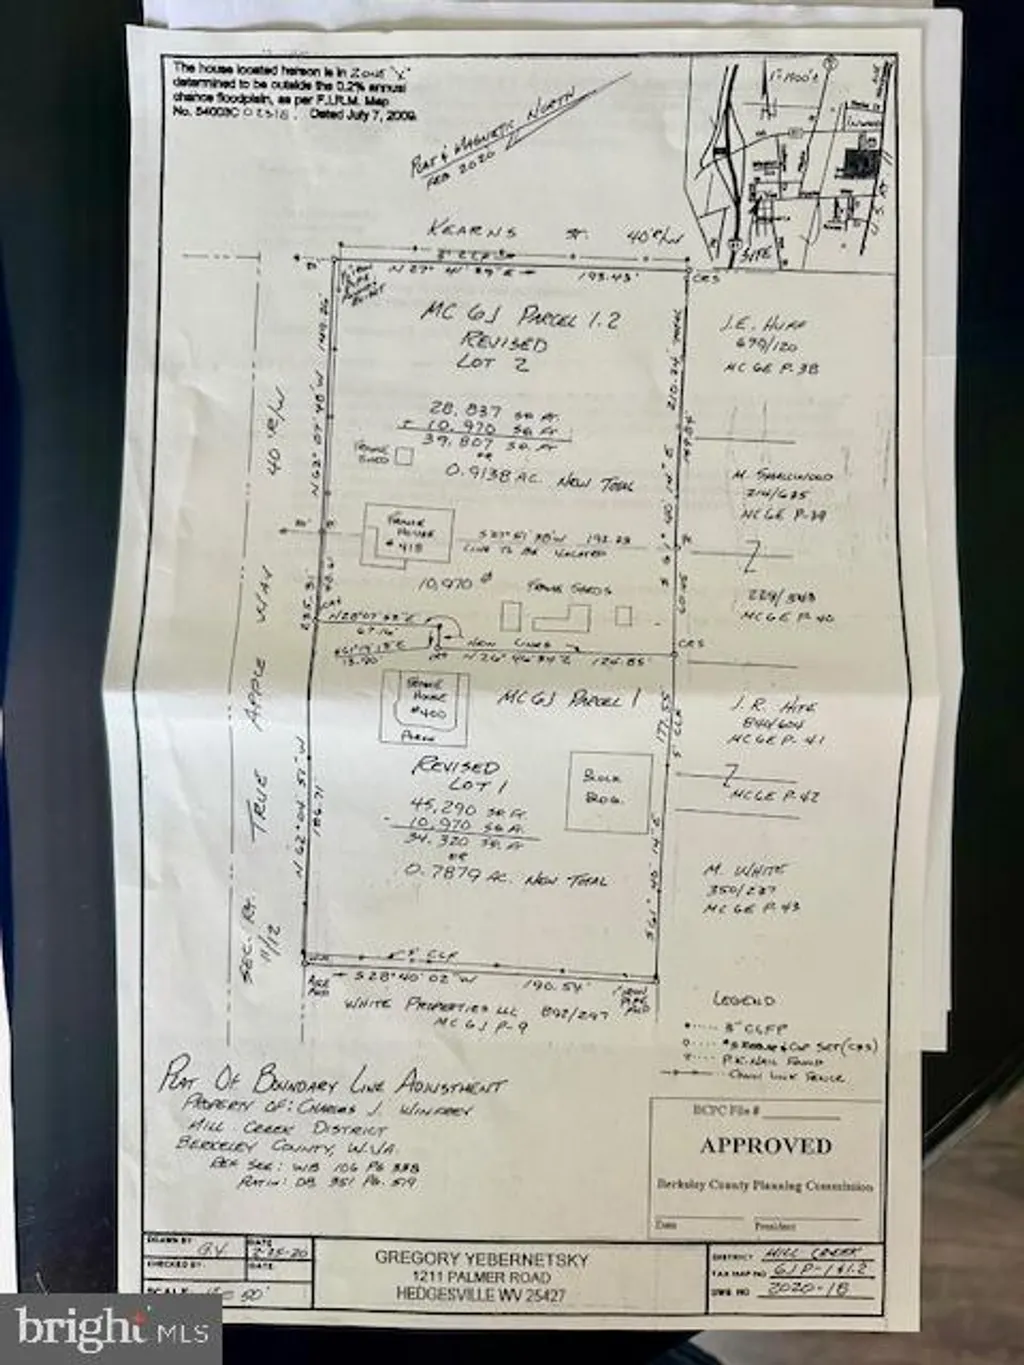 The house located hereon is in ZONE "X"
determined to be outside the 0.2% annual
chance floodplain, as per F.I.R.M. Map
No. 54003C Dated July 7, 2009.
PLAT & MAGNETIC NORTH
FEB 2020
1"=1400'±
INWOOD
SITE
KEARNS ST. 40' R/W
N 27° 41' 39" E 193.43'
CRS
MC 6J PARCEL 1.2
REVISED
LOT 2
28,837 SQ. FT.
+ 10,970 SQ. FT.
39,807 SQ. FT.
OR
0.9138 AC. NEW TOTAL
FRAME
SHED
FRAME
HOUSE
# 418
LINE TO BE VACATED
10,970
FRAME SHEDS
N 28° 07' 53" E
67.16'
13.90'
NEW LINES
N 26° 46' 34" E 124.85'
CRS
FRAME
HOUSE
# 400
PORCH
MC 6J PARCEL 1
REVISED
LOT 1
45,290 SQ. FT.
- 10,970 SQ. FT.
34,320 SQ. FT.
OR
0.7879 AC. NEW TOTAL
BLOCK
BLDG.
N 62° 07' 48" W
N 62° 04' 51" W 186.71
235.31
210.24' TOTAL
60.45
171.55
5' CLF
S 61° 40' 14" E
SEC. RT. 11/12 TRUE APPLE WAY 40' R/W
J.E. HUFF
679/120
MC 6E P-38
M. SMALLWOOD
214/635
MC 6E P-39
229/343
MC 6E P-40
J. R. HITE
844/604
MC 6E P-41
MC 6E P-42
M. WHITE
350/237
MC 6E P-43
S 28° 40' 02" W 190.54'
1" IRON
PIPE
FND
WHITE PROPERTIES LLC 892/297
MC 6J P-9
LEGEND
P.K. NAIL FOUND
CHAIN LINK FENCE
PLAT OF BOUNDARY LINE ADJUSTMENT
PROPERTY OF: CHARLES J. WINFREY
MILL CREEK DISTRICT
BERKELEY COUNTY, W.VA.
REF SEE: WB 106 PG 338
PLAT IN: DB 351 PG. 519
BCPC File #
APPROVED
Berkeley County Planning Commission
Date President
DRAWN BY G.Y.
DATE 2-25-20
CHECKED BY:
DATE:
SCALE 50'
GREGORY YEBERNETSKY
1211 PALMER ROAD
HEDGESVILLE WV 25427
DISTRICT MILL CREEK
TAX MAP NO 6J P-1 & 1.2
DWG NO 2020-18
bright MLS